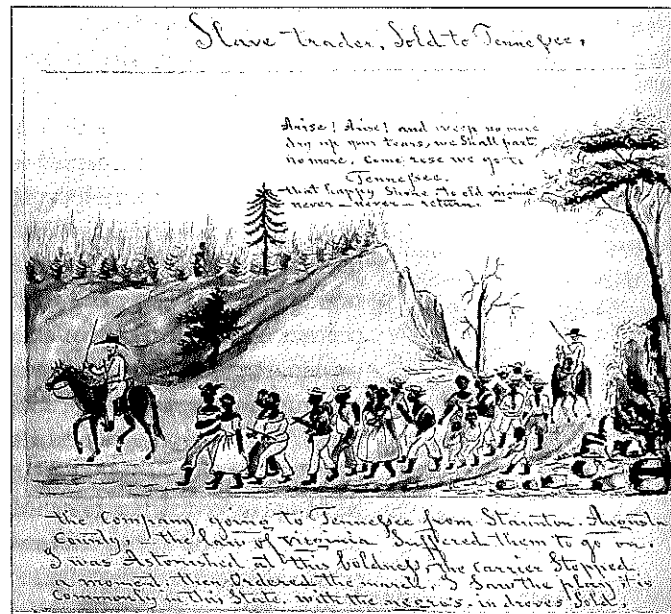 Slave trader, Sold to Tennessee,
Arise! Arise! and weep no more
dry up your tears, we Shall part
no more, Come rose we go to
Tennessee,
that happy Shore, to old virginia
never - never - return.
the Company going to Tennessee from Staunton, Augusta
County, the law of virginia Suffered them to go on.
I was Astonished at this boldness, the carrier Stopped
a moment, then Ordered the march, I Saw the play it is
Commonly in this State, with the in droves Sold.